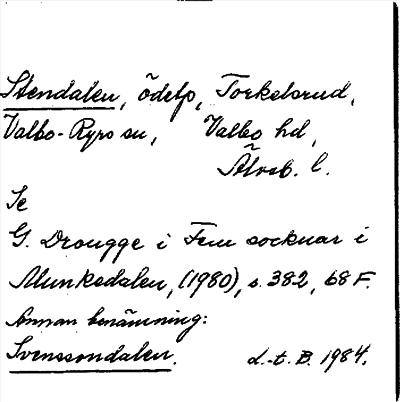 Stendalen, ödetp, Torkelsrud,
Valbo-Ryrs sn, Valbo hd,
Älvsb. l.
Se
G. Drougge i Fem socknar i
Munkedalen, (1980), s. 382, 68 F.
Annan benämning:
Svenssondalen. d.-t. B. 1984.